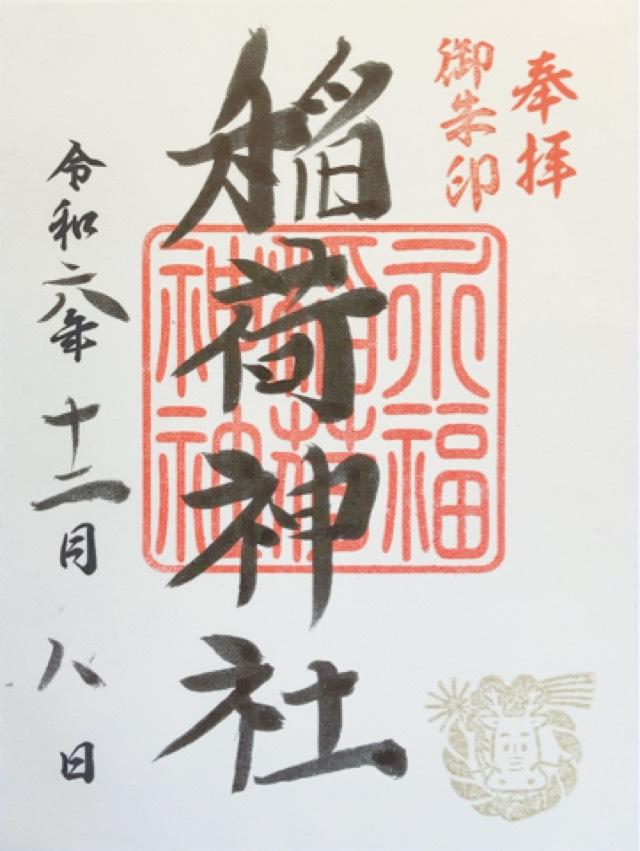 奉拝
御朱印
稲荷神社
永福
稲荷
神社
令和六年十二月八日